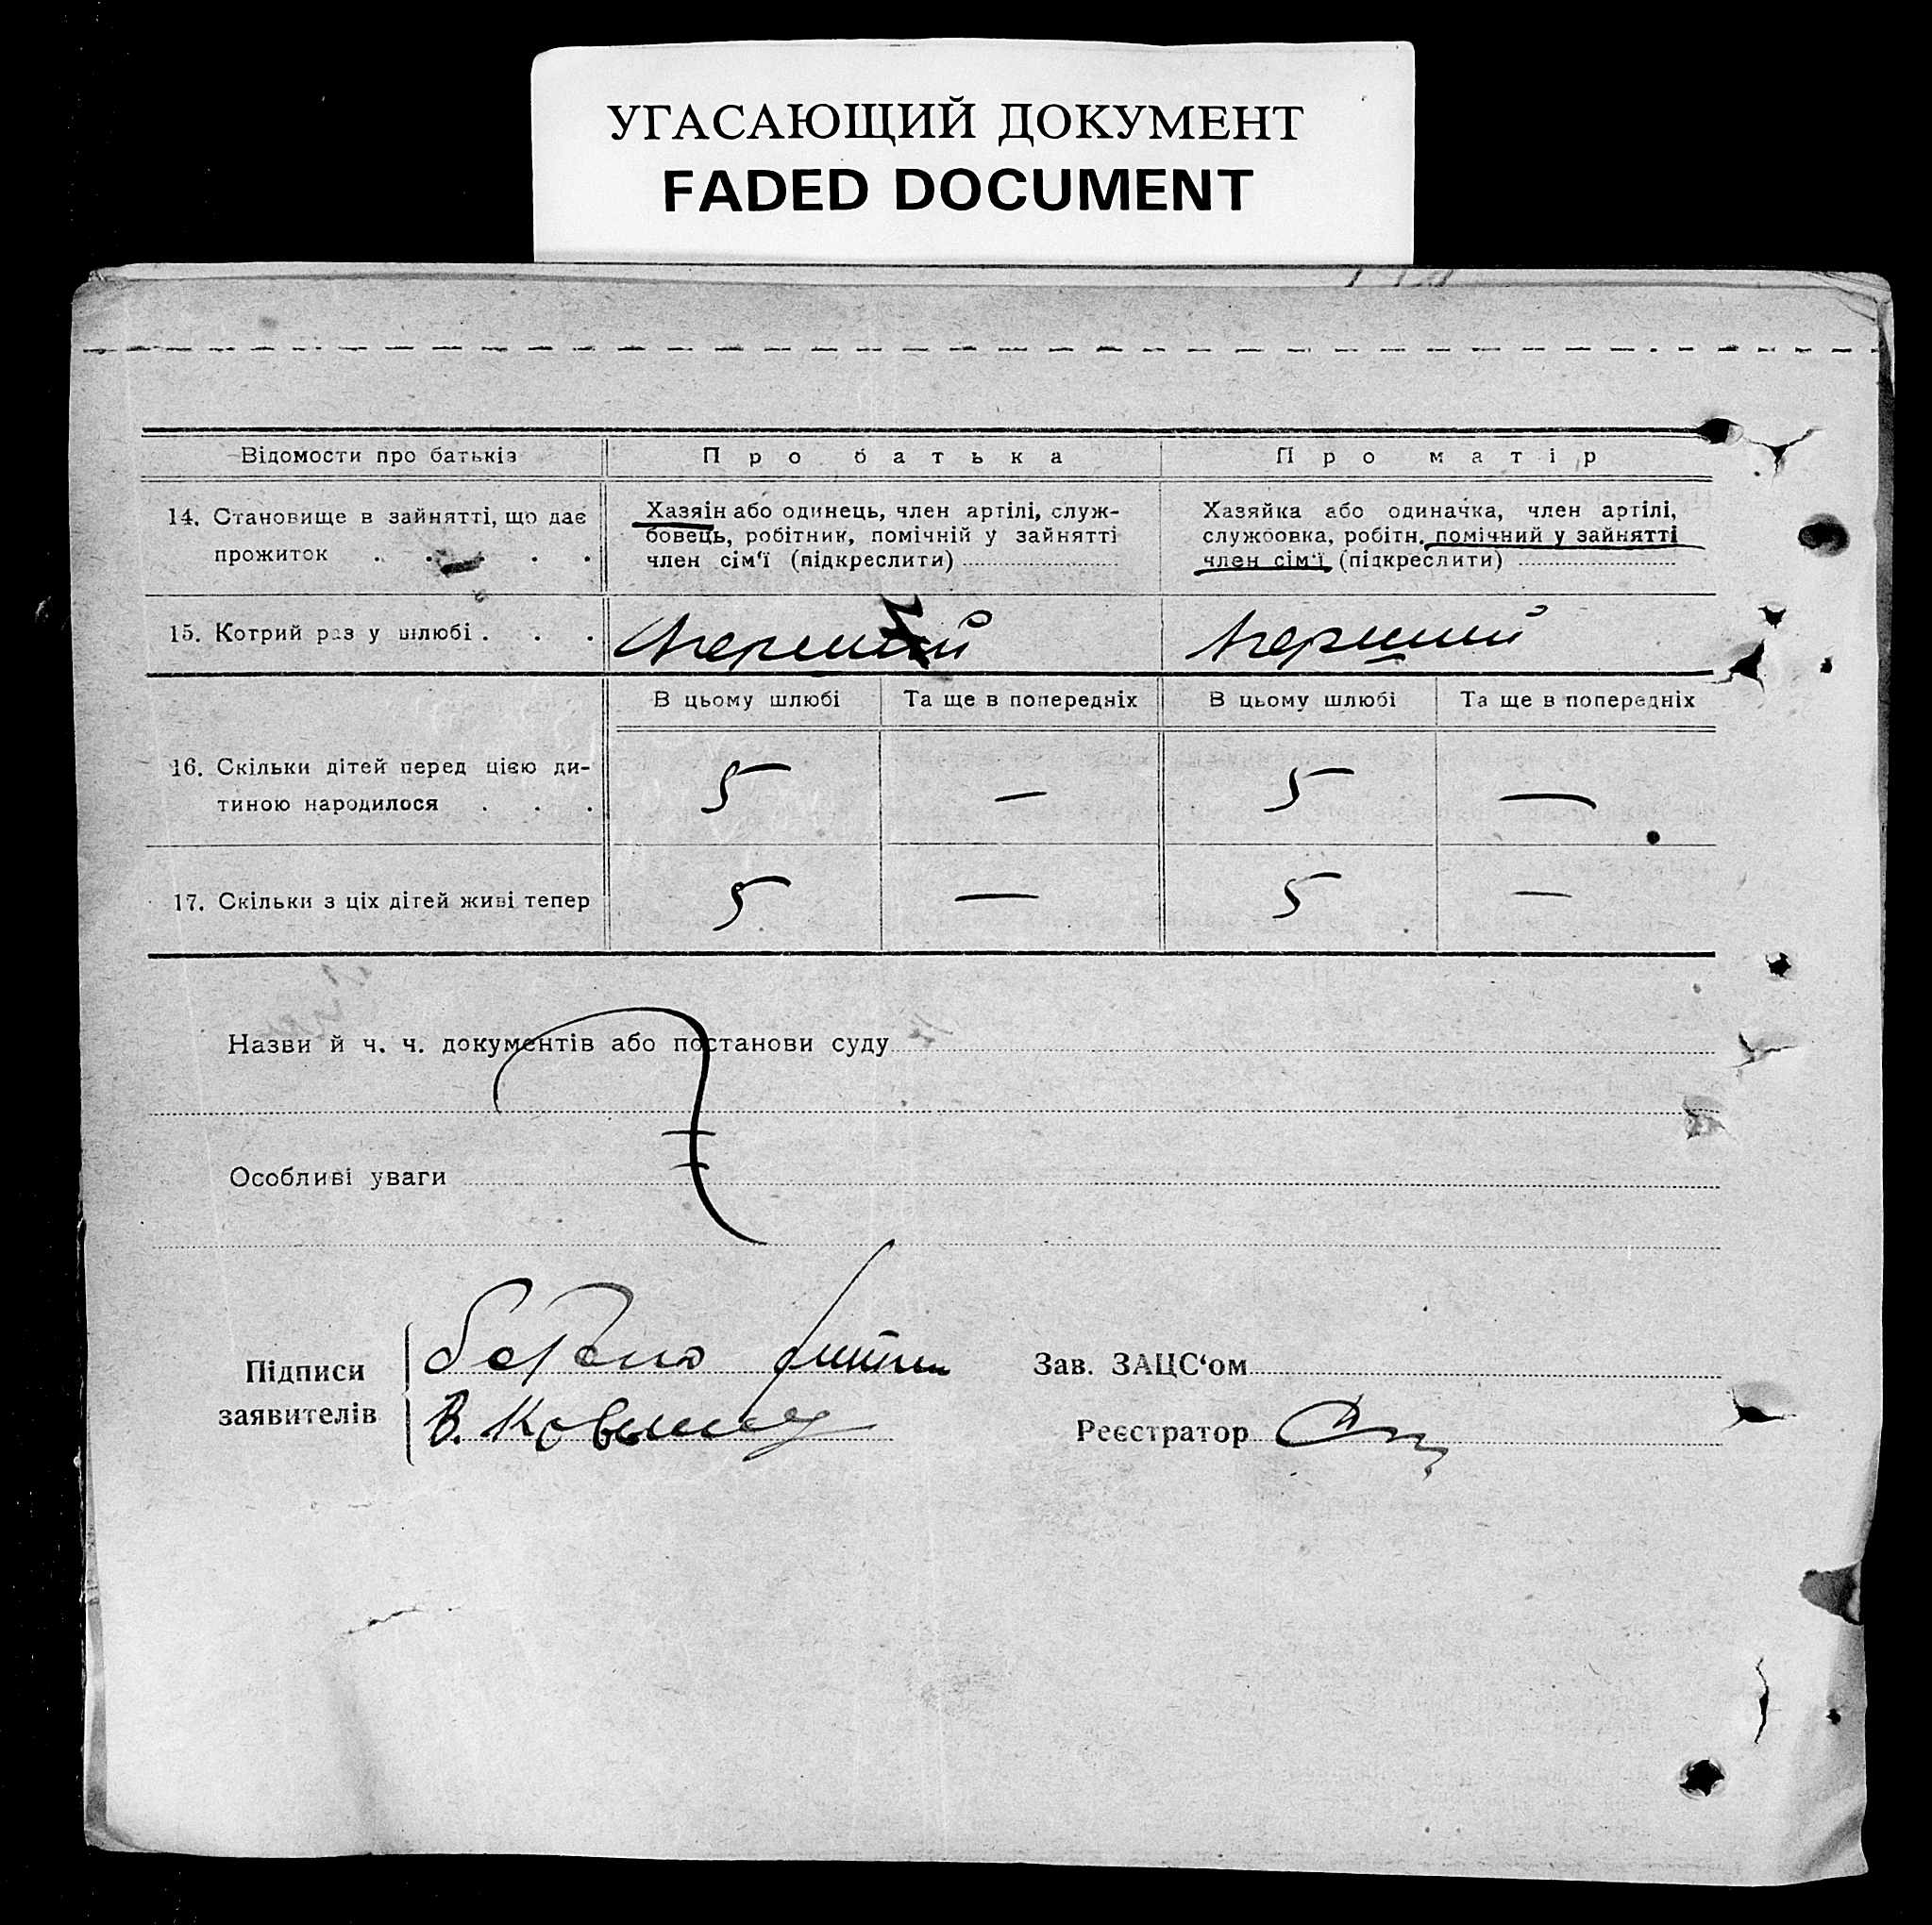 УГАСАЮЩИЙ ДОКУМЕНТ
FADED DOCUMENT
Відомости про батьків
Про батька
Про матір
14. Становище в зайнятті, що дає
прожиток . . . . .
Хазяін або одинець, член артілі, служ-
бовець, робітник, помічній у зайнятті
член сім'ї (підкреслити)
Хазяйка або одиначка, член артілі,
службовка, робітн. помічний у зайнятті
член сім'ї (підкреслити)
15. Котрий раз у шлюбі . . .
перший
перший
В цьому шлюбі
Та ще в попередніх
В цьому шлюбі
Та ще в попередніх
16. Скільки дітей перед цією ди-
тиною народилося . . .
5 — 5 —
17. Скільки з ціх дітей живі тепер
5 — 5 —
Назви й ч. ч. документів або постанови суду
Особливі уваги
Підписи
заявителів
В.
Зав. ЗАЦС‘ом
Реєстратор